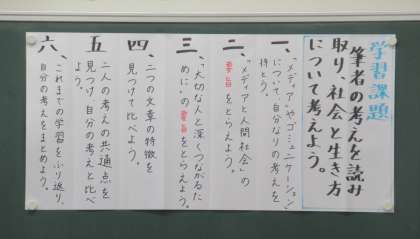 学習課題
筆者の考えを読み
取り、社会と生き方
について考えよう。
一、「メディア」や「コミュニケーション」
について、自分なりの考えを
持とう。
二、「メディアと人間社会」の
要旨をとらえよう。
三、「大切な人と深くつながるた
めに」の要旨をとらえよう。
四、二つの文章の特徴を
見つけて比べよう。
五、二人の考えの共通点を
見つけ、自分の考えと比べ
よう。
六、これまでの学習をふり返り、
自分の考えをまとめよう。